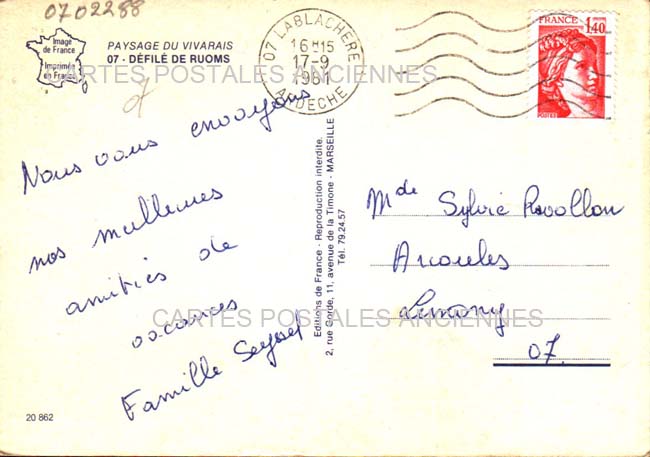 0702288
Image
de France
Imprimée
en France
PAYSAGE DU VIVARAIS
07 - DÉFILÉ DE RUOMS
07 LABLACHÈRE
16H15
17-9
1981
ARDECHE
FRANCE
1,40
POSTES
CARTES POSTALES ANCIENNES
Nous vous envoyons
nos meilleures
amitiés de
vacances
Famille
Editions de France - Reproduction interdite.
2, rue Gorde, 11, avenue de la Timone - MARSEILLE
Tél. 79.24.57
Mde Sylvie
Limony
07.
CARTES POSTALES ANCIENNES
20 862